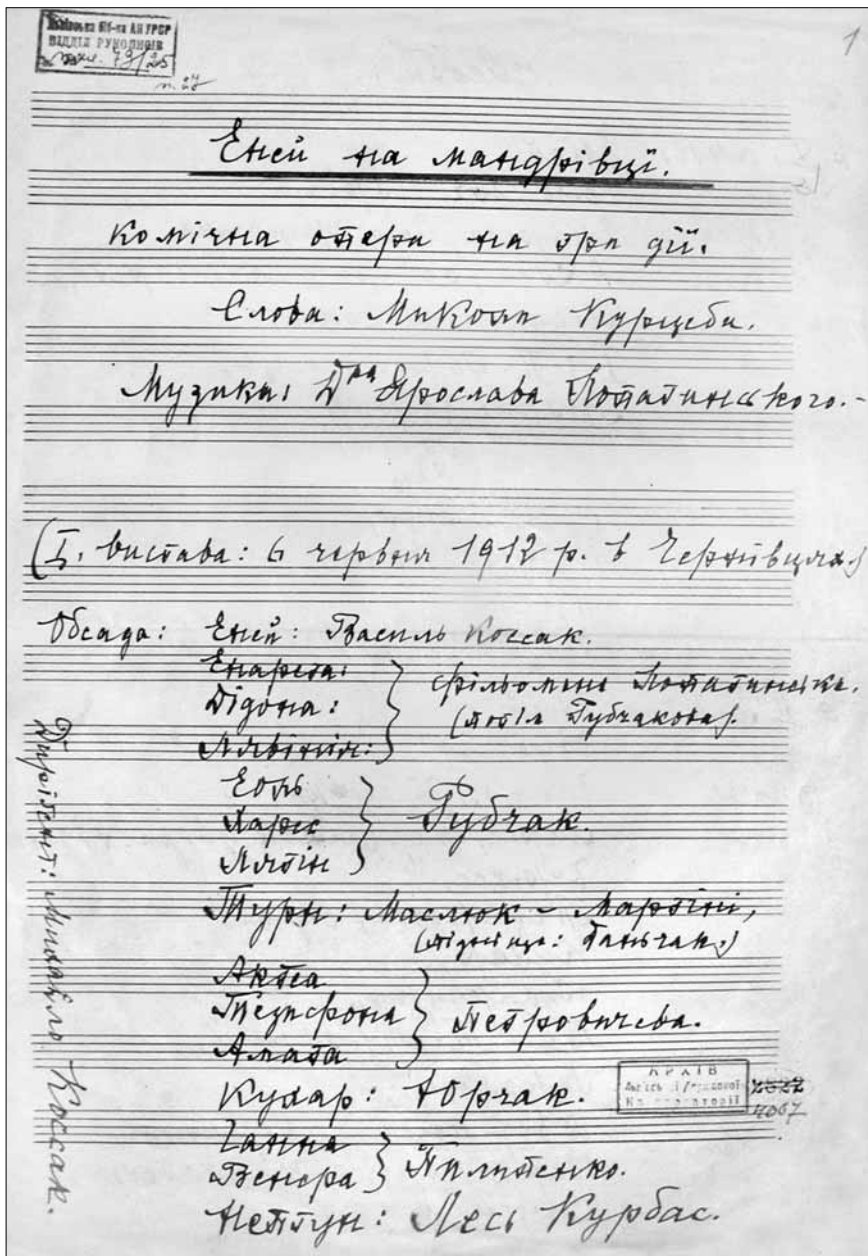 Львівська біб-ка АН УРСР
ВІДДІЛ РУКОПИСІВ
79/25
п. 27
1
Еней на мандрівці.
Комічна опера на три дії.
Слова: Миколи Курцеби.
Музика: Дра Ярослава Лопатинського.-
(I. вистава: 6 червня 1912 р. в Чернівцях)
Обсада: Еней: Василь Коссак.
Енарета:
Дідона:
Лявінія:
Фільомена Лопатинська.
(потім Рубчакова).
Еоль
Харіс
Лятін
Рубчак.
Турн: Маслюк - Мартіні,
(пізнійще: Ганьчак.)
Актеа
Тезифона
Амата
Петровичева.
Кухар: Юрчак.
Ганна
Венера
Пилипенко.
Нептун: Лесь Курбас.
Диріґент: Михайло Коссак.
АРХІВ
Львівської Державної
Консерваторії
4067